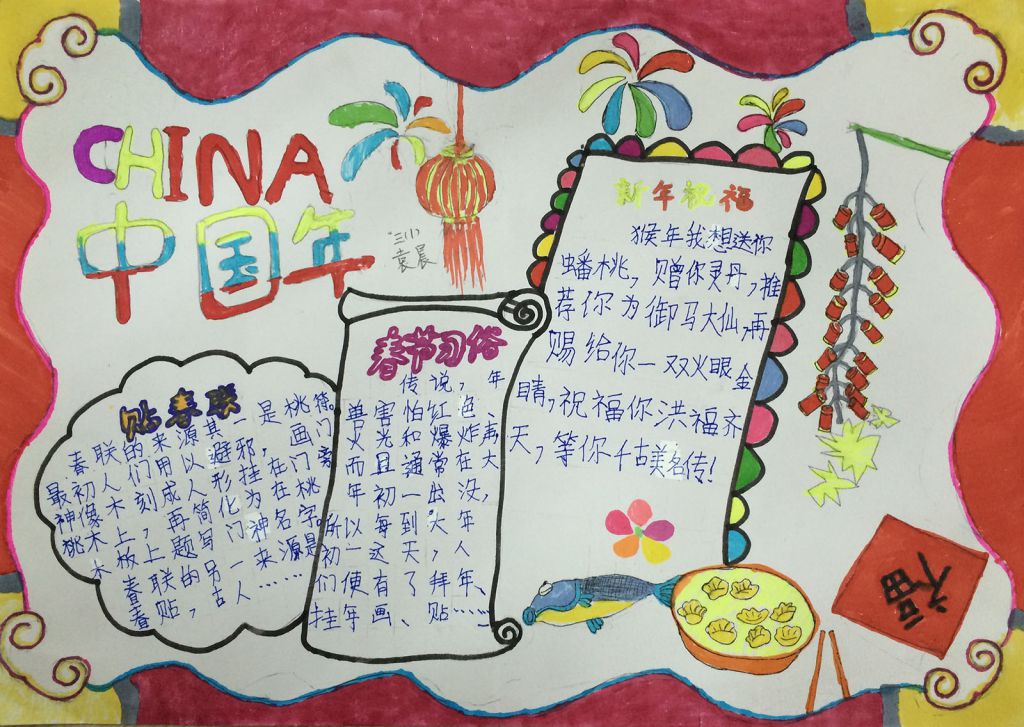 CHINA
中国年
"三小"
袁晨
贴春联
春联的来源其一是桃符。
最初人们用以避邪，画门
神像木刻成人形挂在门旁
桃木上，再简化为在桃
木板上题写门神名字。
春联的另一来源是
春贴，古人……
春节习俗
传说，年
兽害怕红色、
火光和爆炸声，
而且通常在大
年初一出没，
所以每到大年
初一这天，人
们便有了拜年、
挂年画、贴……
新年祝福
猴年我想送你
蟠桃，赠你灵丹，推
荐你为御马大仙，再
赐给你一双火眼金
睛，祝福你洪福齐
天，等你千古美名传！
福